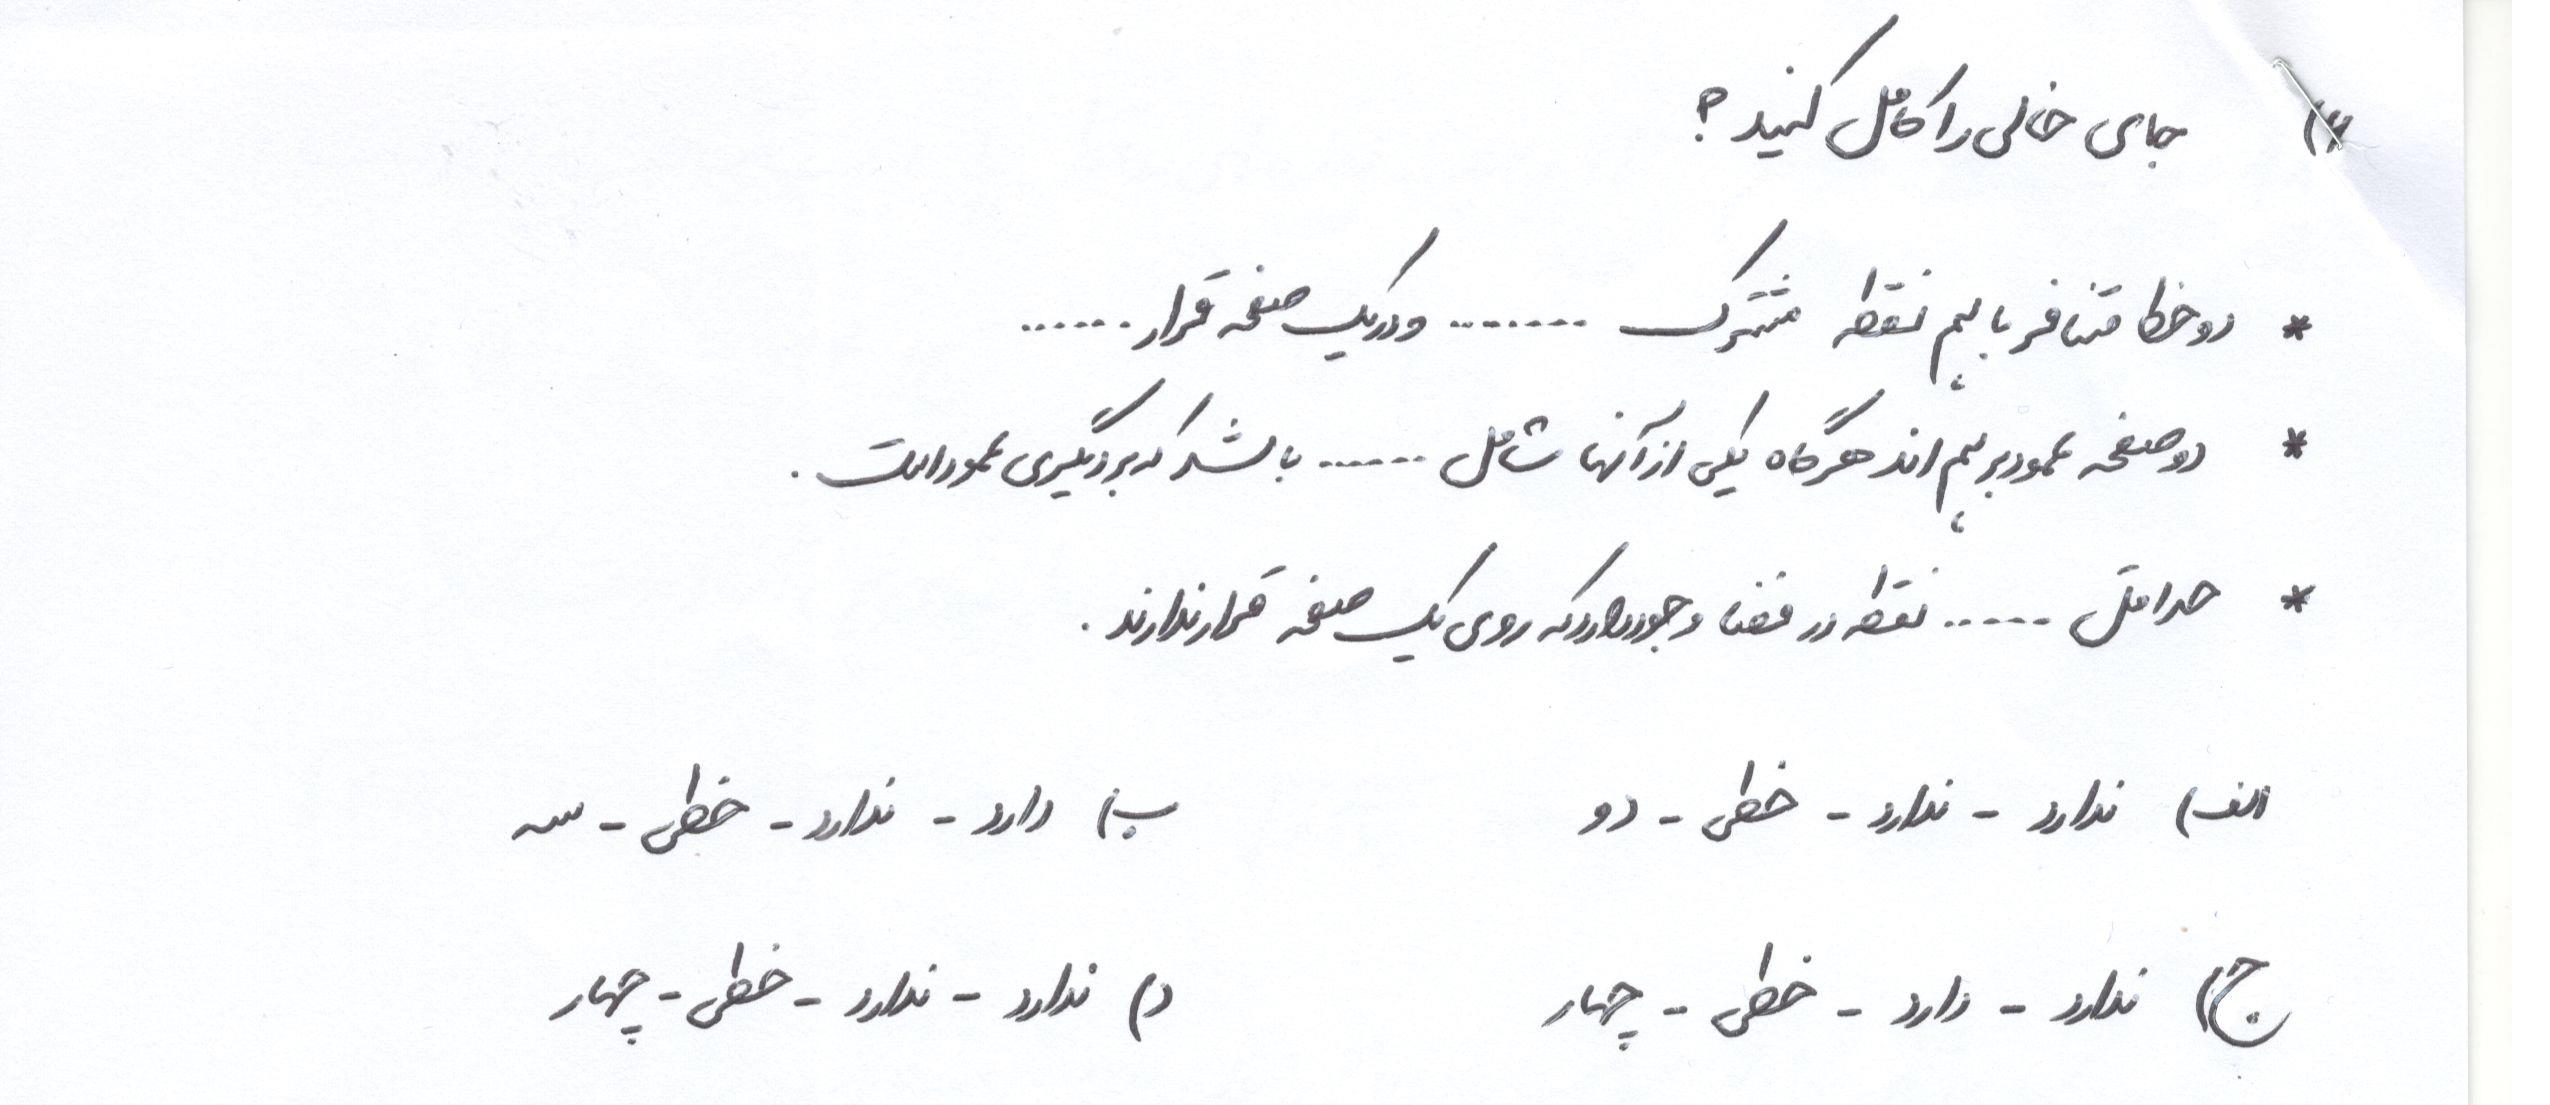 جای خالی را کامل کنید؟
* دو خط متنافر با هم نقطه مشترک ........ و در یک صفحه قرار .......
* دو صفحه عمود بر هم اند هرگاه یکی از آنها شامل ...... باشد که بر دیگری عمود است .
* حداقل ...... نقطه در فضا وجود دارد که روی یک صفحه قرار ندارند .
الف) ندارد - ندارد - خطی - دو
ب) دارد - ندارد - خطی - سه
ج) ندارد - دارد - خطی - چهار
د) ندارد - ندارد - خطی - چهار